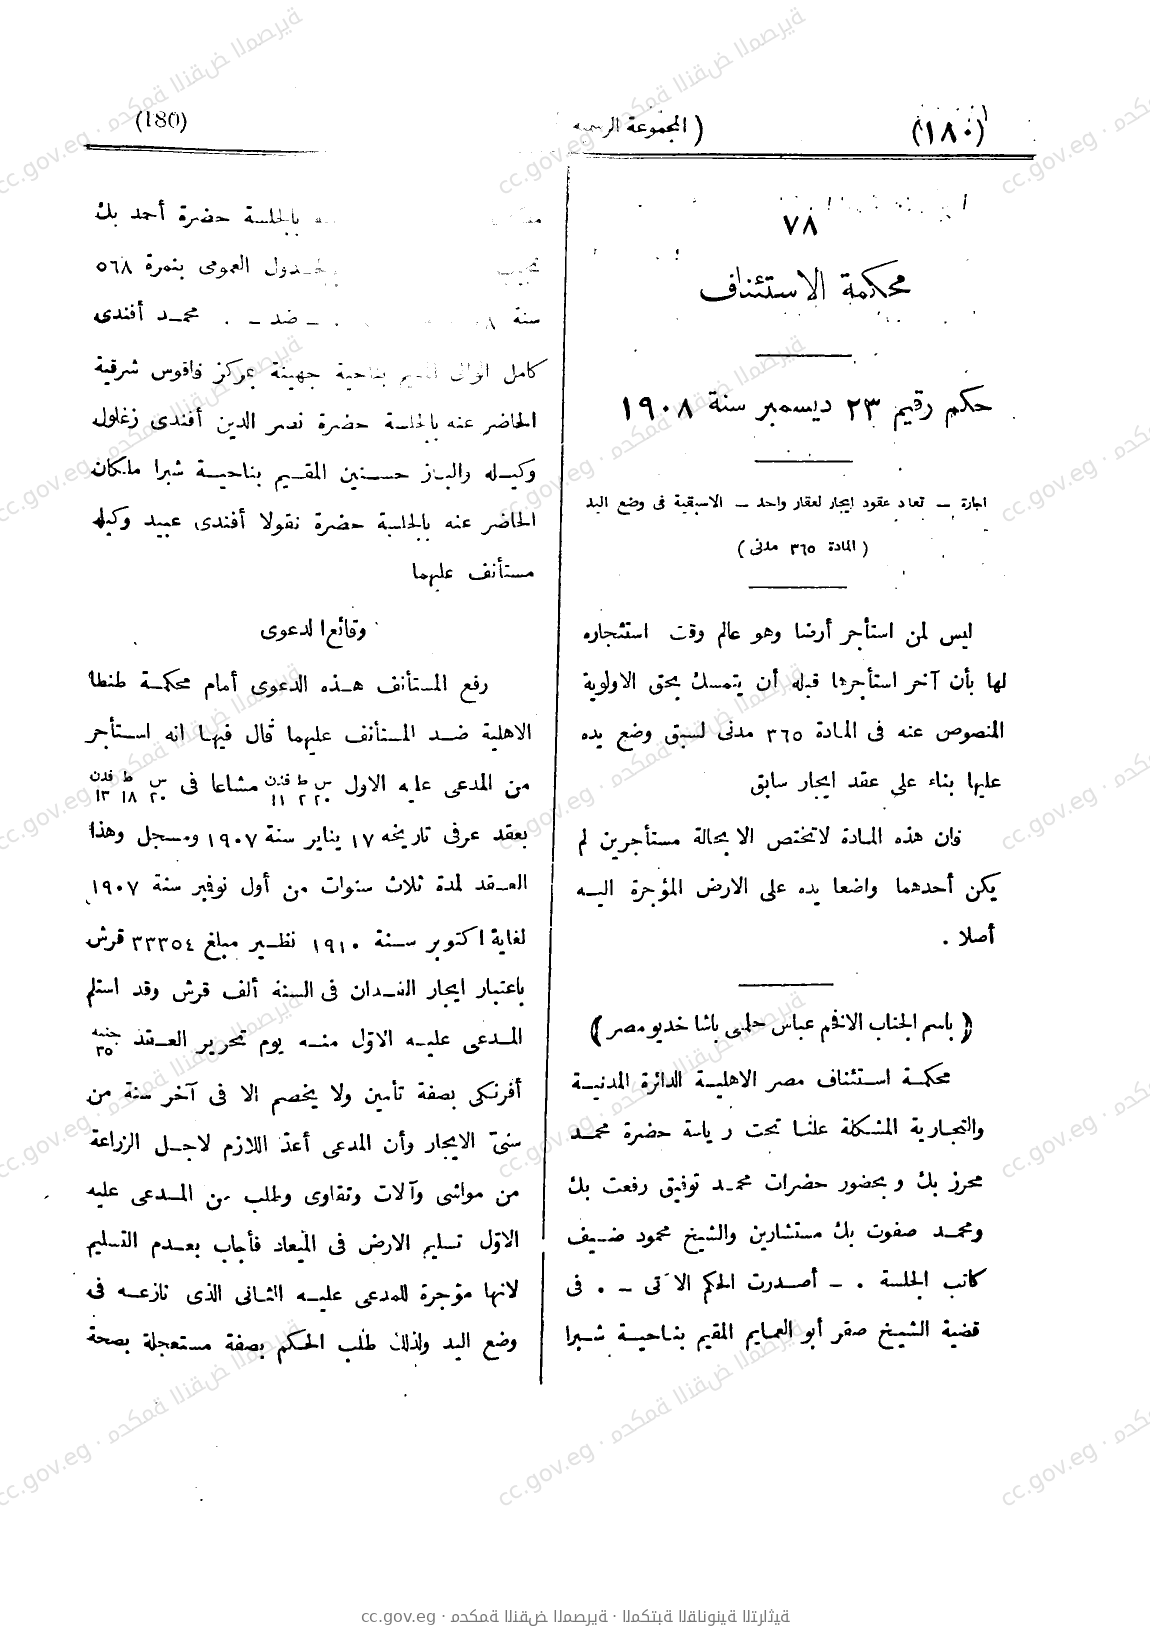 (١٨٠)
( المجموعة الرسمية
(180)
٧٨
محكمة الاستئناف
حكم رقيم ٢٣ ديسمبر سنة ١٩٠٨
اجارة — تعاد عقود ايجار لعقار واحد — الاسبقية فى وضع اليد
( المادة ٣٦٥ مدنى )
ليس لمن استأجر أرضا وهو عالم وقت استئجاره
لها بأن آخر استأجرها قبله أن يتمسك بحق الاولوية
المنصوص عنه فى المادة ٣٦٥ مدنى لسبق وضع يده
عليها بناء على عقد ايجار سابق
فان هذه المادة لا تختص الا بحالة مستأجرين لم
يكن أحدهما واضعا يده على الارض المؤجرة اليه
أصلا .
( باسم الجناب الافخم عباس حلمى باشا خديو مصر )
محكمة استئناف مصر الاهلية الدائرة المدنية
والتجارية المشكلة علنا تحت رياسة حضرة محمد
محرز بك وبحضور حضرات محمد توفيق رفعت بك
ومحمد صفوت بك مستشارين والشيخ محمود ضيف
كاتب الجلسة . — أصدرت الحكم الآتى — . فى
قضية الشيخ صقر أبو العمايم المقيم بناحية شبرا
بالجلسة حضرة أحمد بك
نجيب الجدول العمومى بنمرة ٥٦٨
سنة ٨ . — ضد — . محمد أفندى
كامل الوالى المقيم بناحية جهينة بمركز فاقوس شرقية
الحاضر عنه بالجلسة حضرة نصر الدين أفندى زغلول
وكيله والباز حسنين المقيم بناحية شبرا ملكان
الحاضر عنه بالجلسة حضرة نقولا أفندى عبيد وكيله
مستأنف عليهما
وقائع الدعوى
رفع المستأنف هذه الدعوى أمام محكمة طنطا
الاهلية ضد المستأنف عليهما قال فيها انه استأجر
من المدعى عليه الاول س ٢٠ ط ٢ فدن ١١ مشاعا فى س ٢٠ ط ١٨ فدن ١٣
بعقد عرفى تاريخه ١٧ يناير سنة ١٩٠٧ ومسجل وهذا
العقد لمدة ثلاث سنوات من أول نوفمبر سنة ١٩٠٧
لغاية اكتوبر سنة ١٩١٠ نظير مبلغ ٣٣٣٥٤ قرش
باعتبار ايجار الفدان فى السنة ألف قرش وقد استلم
المدعى عليه الاوّل منه يوم تحرير العقد ٣٥ جنيه
أفرنكى بصفة تأمين ولا يخصم الا فى آخر سنة من
سنىّ الايجار وأن المدعى أعدّ اللازم لاجل الزراعة
من مواشى وآلات وتقاوى وطلب من المدعى عليه
الاوّل تسليم الارض فى الميعاد فأجاب بعدم التسليم
لانها مؤجرة للمدعى عليه الثانى الذى نازعه فى
وضع اليد ولذلك طلب الحكم بصفة مستعجلة بصحة
cc.gov.eg · محكمة النقض المصرية · المكتبة القانونية التراثية